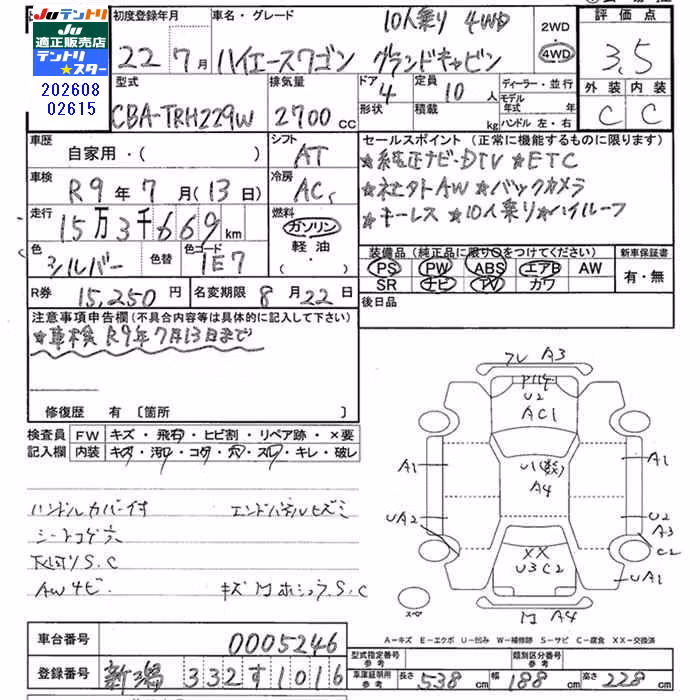 JUテントリ
JUテントリ
適正販売店
テントリ
★スター
202608
02615
初度登録年月
22年7月
車名・グレード
10人乗り 4WD
ハイエースワゴン グランドキャビン
2WD
4WD
評価点
3.5
外装 内装
C C
型式
CBA-TRH229W
排気量
2700cc
ドア 4
形状
定員 10人
積載 kg
ディーラー・並行
モデル年式 年
ハンドル 左・右
車歴
自家用・( )
シフト AT
車検
R9年7月(13日)
冷房 AC
走行
15万3千669km
燃料
ガソリン
軽油
・( )
色 シルバー
色替
色コード 1E7
R券 15,250円
名変期限 8月22日
セールスポイント(正常に機能するものに限ります)
★純正ナビ・DTV ★ETC
★社外AW ★バックカメラ
★キーレス ★10人乗り★ハイルーフ
装備品(純正品に限り○をつけてください)
PS PW ABS エアB AW
SR ナビ TV カワ
新車保証書
有・無
後日品
注意事項申告欄(不具合内容等は具体的に記入して下さい)
★車検 R9年7月13日まで
修復歴 有 [箇所 ]
検査員
記入欄
FW キズ・飛石・ヒビ割・リペア跡・×要
内装 キズ・汚レ・コゲ・穴・スレ・キレ・破レ
ハンドルカバー付 エンドパネルヒズミ
シートコゲ穴
下回りS.C
AWサビ
A3
U2
AC1
A4
A1
A1
UA2
U2
A3
C2
XX
U3 C2
UA1
A4
スペア
A-キズ E-エクボ U-凹み W-補修跡 S-サビ C-腐食 XX-交換済
車台番号 0005246
登録番号 新潟 332 す 1016
型式指定番号
参考
類別区分番号
参考
車庫証明用
参考
長さ 538cm 幅 188cm 高さ 228cm